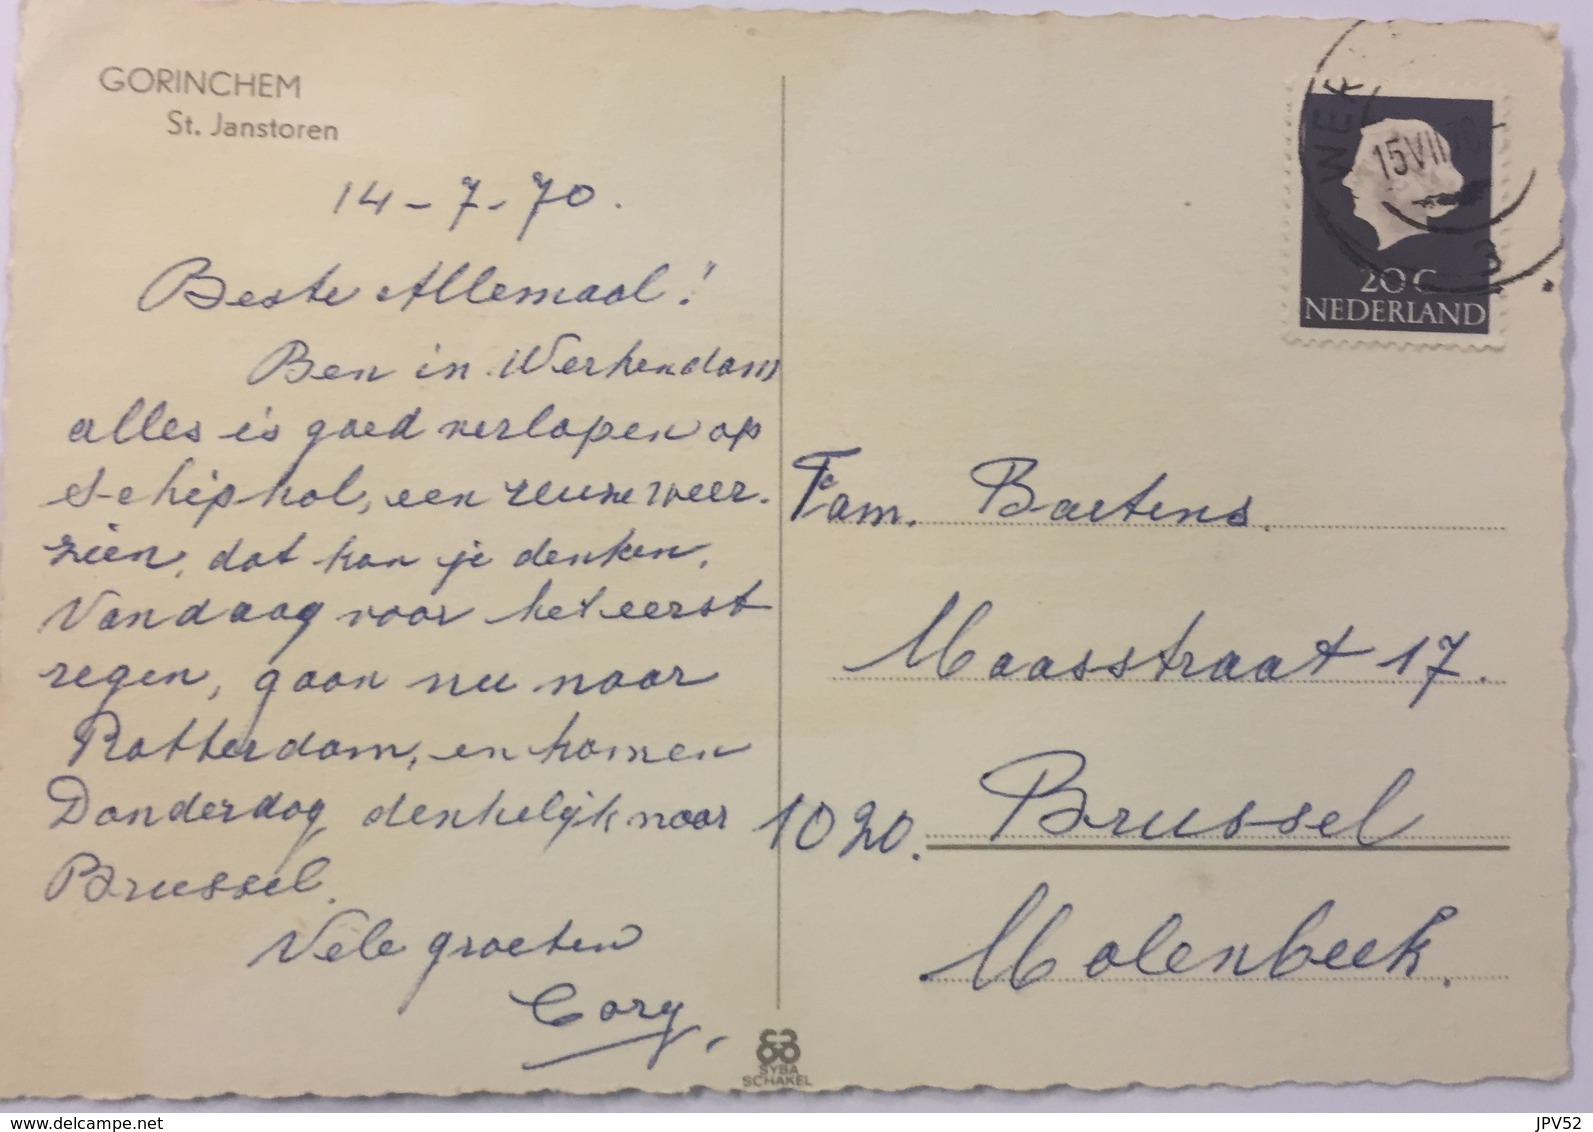 GORINCHEM
St. Janstoren
14-7-70.
Beste Allemaal!
Ben in Werkendam
alles is goed verlopen op
Schiphol, een reuze weer-
zien, dat kan je denken.
Vandaag voor het eerst
regen, gaan nu naar
Rotterdam, en komen
Donderdag denkelijk naar
Brussel.
Vele groeten
Corry.
SYBA
SCHAKEL
WER
15 VII 70
3
20 C
NEDERLAND
Fam. Baetens.
Maasstraat 17.
1020. Brussel
Molenbeek.
www.delcampe.net
JPV52